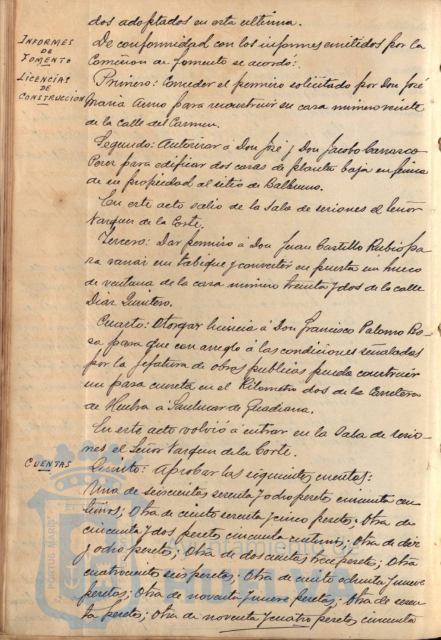 dos adoptados en esta última.
INFORMES DE FOMENTO
De conformidad con los informes emitidos por la
Comisión de Fomento se acordó:
LICENCIAS DE CONSTRUCCION
Primero: Conceder el permiso solicitado por Don José
María para reconstruir su casa número veinte
de la calle del Carmen.
Segundo: Autorizar a Don José y Don Jacobo Carrasco
para edificar dos casas de planta baja en finca
de su propiedad al sitio de Balbueno.
En este acto salió de la Sala de sesiones el Señor
Vazquez de la Corte.
Tercero: Dar permiso á Don Juan Castillo Rubio pa
ra variar un tabique y convertir en puerta un hueco
de ventana de la casa número treinta y dos de la calle
Diaz Quintero.
Cuarto: Otorgar licencia á Don Francisco Palomo Ro
sa para que con arreglo á las condiciones señaladas
por la Jefatura de obras públicas pueda construir
un pasa cuneta en el Kilómetro dos de la Carretera
de Huelva á Sanlucar de Guadiana.
En este acto volvió á entrar en la Sala de sesio-
nes el Señor Vazquez de la Corte.
CUENTAS
Quinto: Aprobar las siguientes cuentas:
Una de seiscientas sesenta y ocho pesetas cincuenta cen
timos; Otra de ciento sesenta y cinco pesetas; Otra de
cincuenta y dos pesetas cincuenta centimos; Otra de diez
y ocho pesetas; Otra de doscientas tres pesetas; Otra
cuatrocientas seis pesetas; Otra de ciento ochenta y nueve
pesetas; Otra de noventa y nueve pesetas; Otra de sesen
ta pesetas; Otra de noventa y cuatro pesetas cincuenta